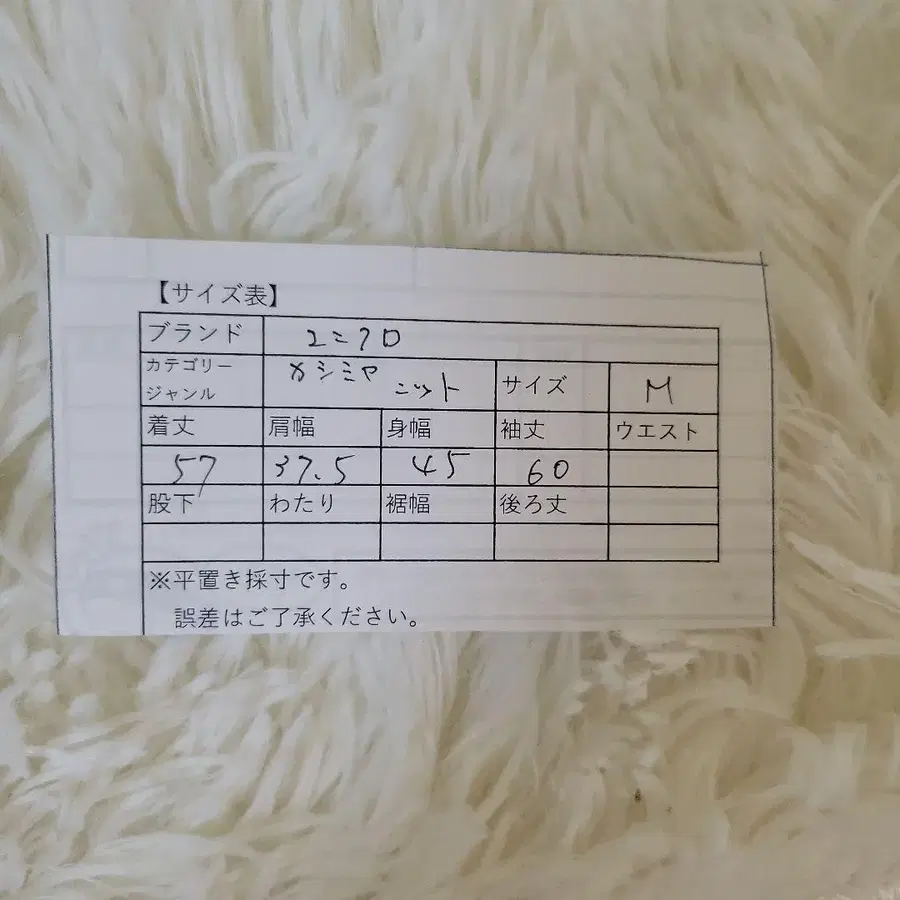 【サイズ表】
ブランド ユニクロ
カテゴリー
ジャンル カシミヤ ニット サイズ M
着丈 肩幅 身幅 袖丈 ウエスト
57 37.5 45 60
股下 わたり 裾幅 後ろ丈
※平置き採寸です。
誤差はご了承ください。